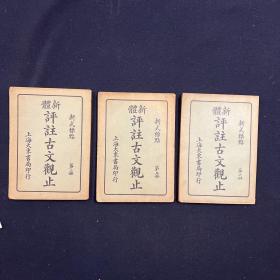 新體
評註古文觀止
新式標點
上海大東書局印行
新體
評註古文觀止
新式標點
上海大東書局印行
新體
評註古文觀止
新式標點
上海大東書局印行